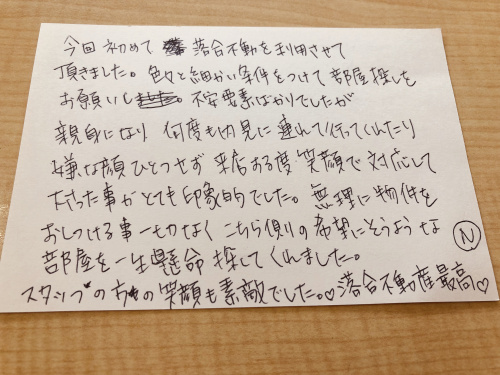 今回初めて落合不動を利用させて
頂きました。色々と細かい条件をつけて部屋探しを
お願いし 不安要素ばかりでしたが
親身になり 何度も内見に連れて行ってくれたり
嫌な顔ひとつせず 来店する度笑顔で対応して
下さった事がとても印象的でした。無理に物件を
おしつける事一切なく こちら側の希望にそうような
部屋を一生懸命 探してくれました。
スタッフの方々の笑顔も素敵でした。♡落合不動産最高♡
N